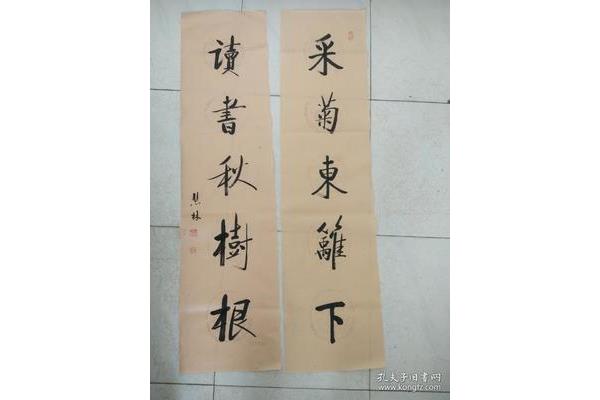 采菊東籬下
讀書秋樹根
孔夫子旧书网
www.kongfz.com